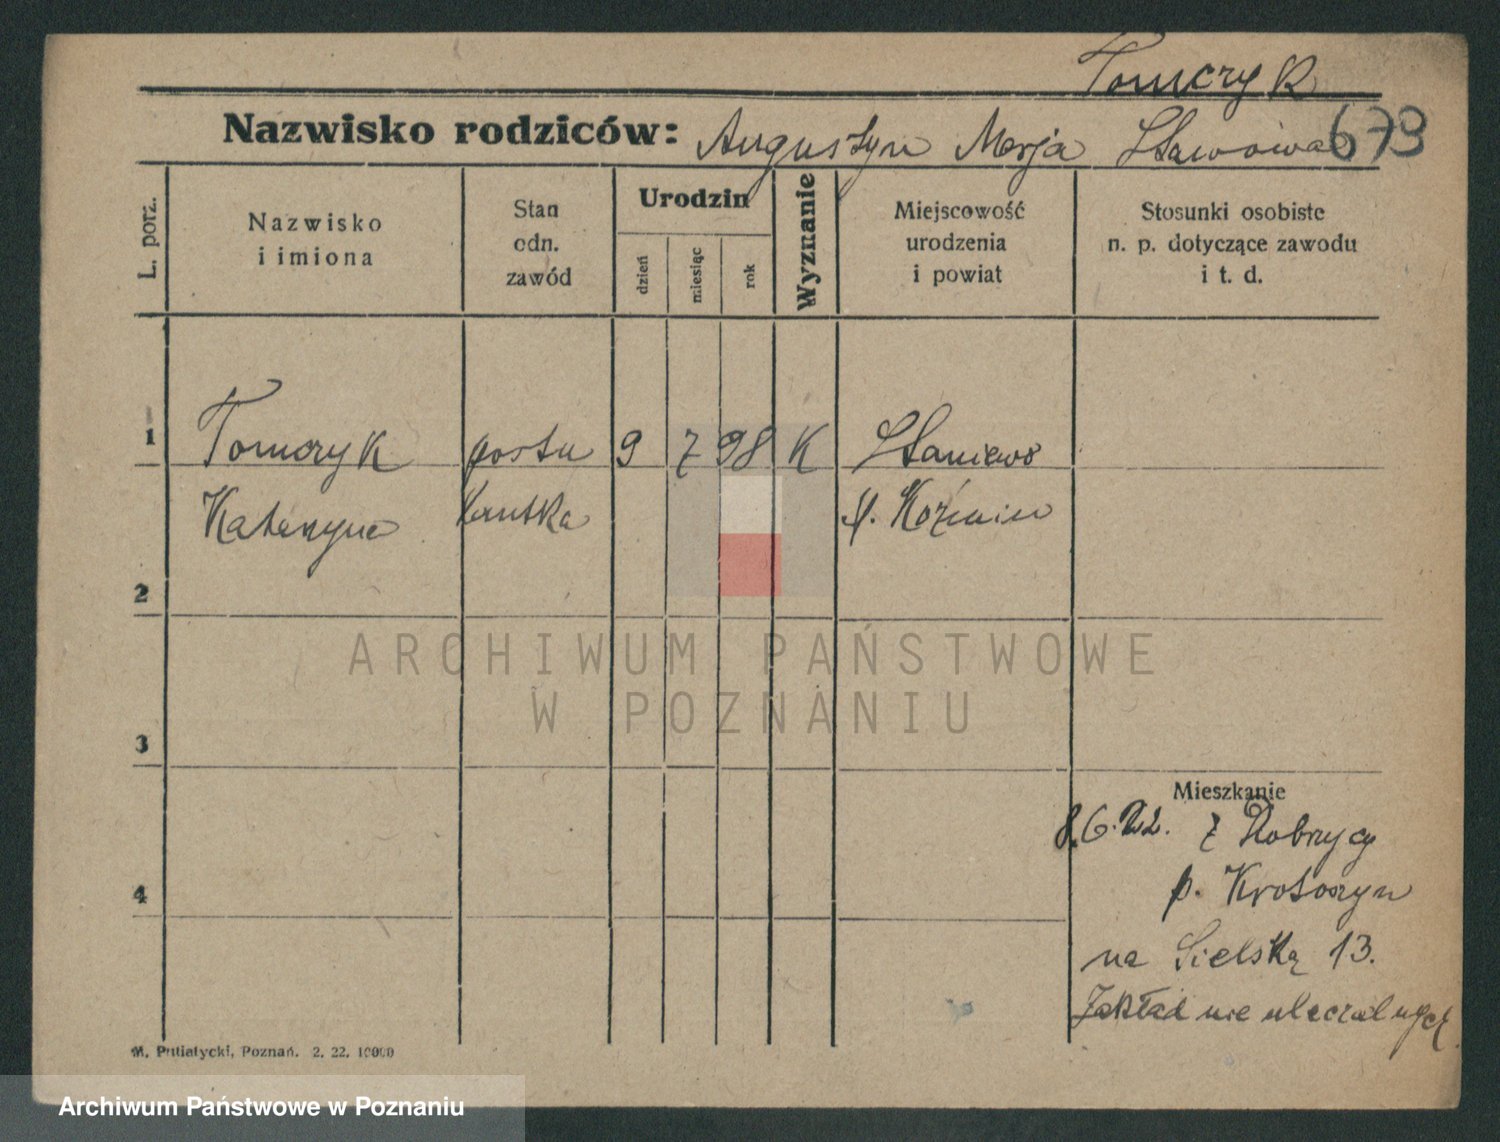 Tomczyk
Nazwisko rodziców: Augustyn Marja 679
L. porz.
Nazwisko
i imiona
Stan
odn.
zawód
Urodzin
dzień
miesiąc
rok
Wyznanie
Miejscowość
urodzenia
i powiat
Stosunki osobiste
n. p. dotyczące zawodu
i t. d.
1 Tomczyk postu 9 7 98 K Staniewo
Katarzyna lantka p. Koźmin
2
ARCHIWUM PAŃSTWOWE
W POZNANIU
3
Mieszkanie
8.6.22. z Dobrzycy
4 p. Krotoszyn
na Sielską 13.
Zakład nieuleczalnych
M. Putiatycki, Poznań. 2. 22. 10000
Archiwum Państwowe w Poznaniu